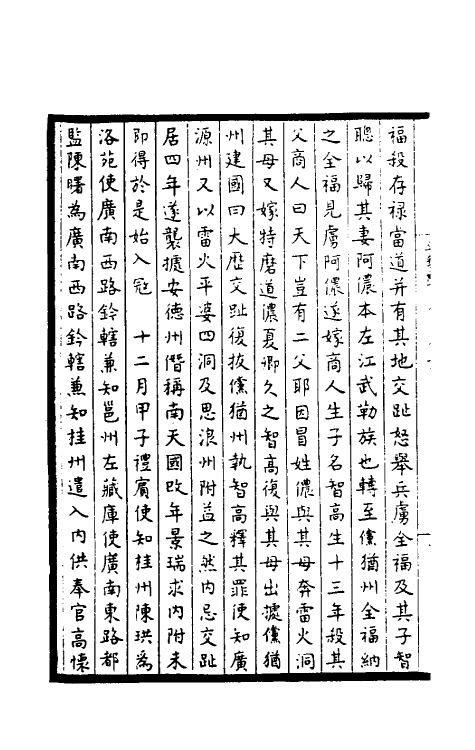 福殺存禄當道并有其地交趾怒舉兵虜全福及其子智
聰以歸其妻阿儂本左江武勒族也轉至儻猶州全福納
之全福見虜阿儂遂嫁商人生子名智高生十三年殺其
父商人曰天下豈有二父耶因冒姓儂與其母奔雷火洞
其母又嫁特磨道儂夏卿久之智高復與其母出據儻猶
州建國曰大歷交趾復抜儻猶州執智高釋其罪使知廣
源州又以雷火平婆四洞及思浪州附益之然内忌交趾
居四年遂襲據安德州僭稱南天國改年景瑞求内附未
即得於是始入冦　十二月甲子禮賓使知桂州陳珙為
洛苑使廣南西路鈐轄兼知邕州左藏庫使廣南東路都
監陳曙為廣南西路鈐轄兼知桂州遣入内供奉官高懷